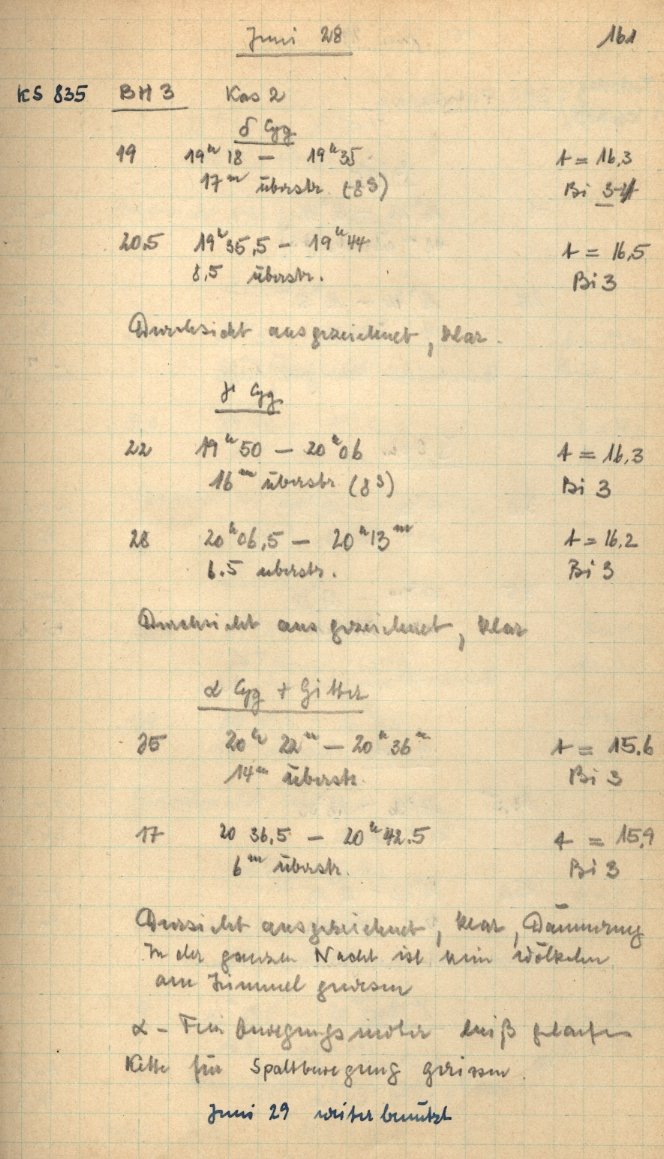 Juni 28 161
KS 835 BH 3 Kas 2
δ Cyg
19 19ʰ 18 – 19ʰ35 t = 16,3
17ᵐ überstr. (8S) Bi 3-4
20,5 19ʰ35,5 – 19ʰ44 t = 16,5
8,5 überstr. Bi 3
Durchsicht ausgezeichnet, klar.
γ Cyg
22 19ʰ50 – 20ʰ06 t = 16,3
16ᵐ überstr (8S) Bi 3
28 20ʰ06,5 – 20ʰ13ᵐ t = 16,2
6.5 überstr. Bi 3
Durchsicht ausgezeichnet, klar
α Cyg + Gitter
20ʰ 22ᵐ – 20ʰ 36ᵐ t = 15.6
14ᵐ überstr. Bi 3
17 20 36,5 – 20ʰ42.5 t = 15,9
6ᵐ überstr. Bi 3
Dursicht ausgezeichnet, klar, Dämmrung
In der ganzen Nacht ist kein Wölkchen
am Himmel gewesen
α – Fein Bewegungsmotor heiß gelaufen
Kette für Spaltbewegung gerissen.
Juni 29 weiter benützt